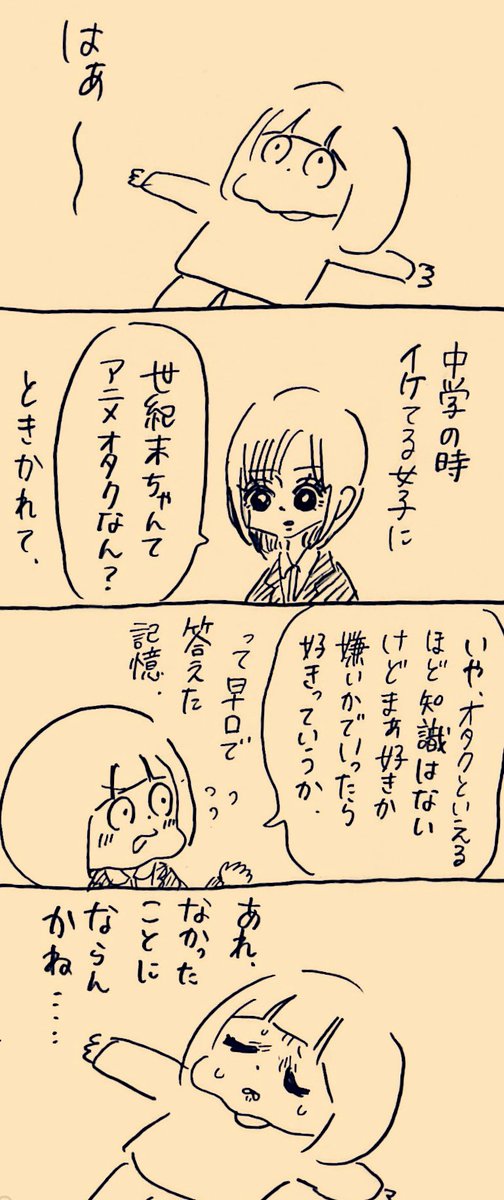 はあ〜
中学の時
イケてる女子に
世紀末ちゃんて
アニメオタクなん?
ときかれて、
いや、オタクといえる
ほど知識はない
けどまぁ好きか
嫌いかでいったら
好きっていうか、
って早口で
答えた
記憶.
あれ、
なかった
ことに
ならん
かね……